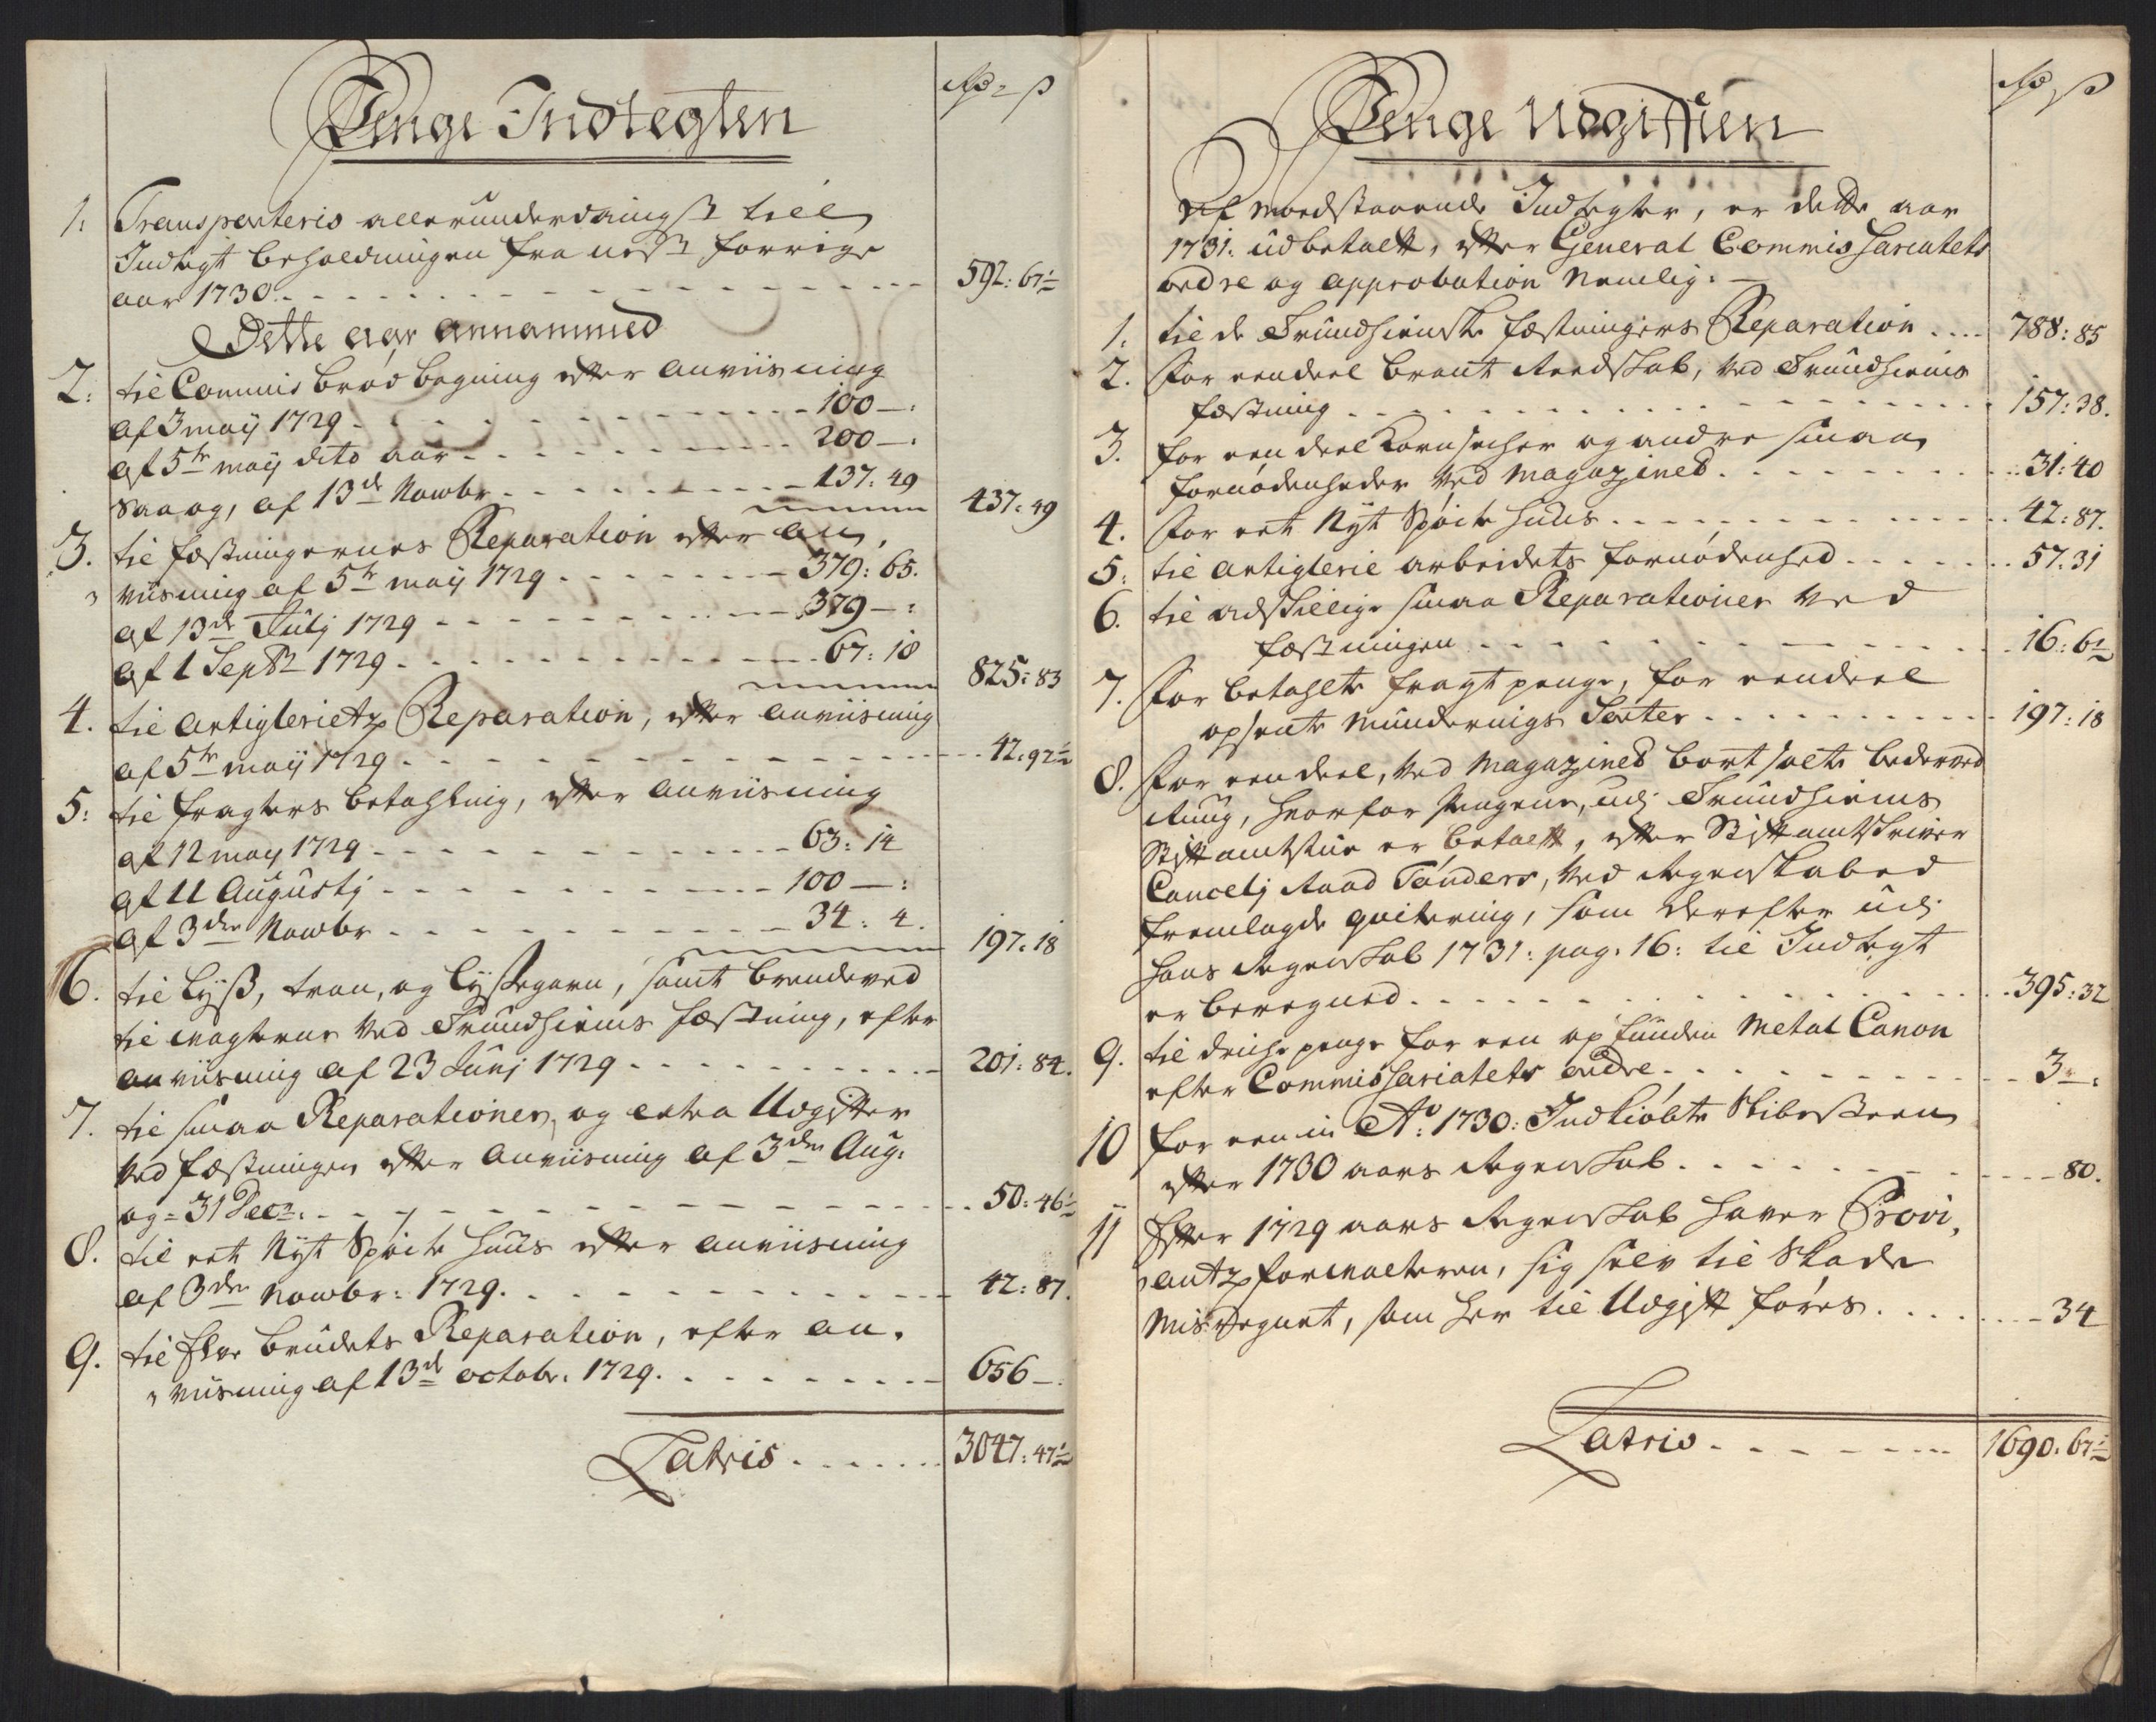 Penge Indtegten
Rd - ß
1. Transporteris allerunderdanigst till
Indtegt beholdningen fra nest forrige
aar 1730. 592: 67½
Dette aar annammed
2. til Commis brød bagning efter anviisning
af 3 maij 1729. 100 —:
af 5te maij dito aar 200 —:
Saa og, af 13de Novbr 137: 49
437: 49
3. til fæstningernes Reparation efter an,
viisning af 5te maij 1729 379: 65.
af 13de Julij 1729 379 —:
af 1 Septbr 1729. 67: 18
825: 83
4. til Artiglerietz Reparation, efter anviisning
af 5te maij 1729. 42: 92½
5: til fragters betahlning, efter anviisning
af 12 maij 1729 63: 14
af 11 Augustj 100 —:
af 3die Novbr 34: 4.
197: 18
6. til Lyß, tran, og Lyßegarn, samt brendeved
til vagterne ved Trundhiems fæstning, efter
anviisning af 23 Junj 1729 201: 84.
7. til smaa Reparationer, og extra Udgifter
ved fæstningen efter anviisning af 3die Aug:
og = 31 Decbr. 50: 46½
8. til eet Nyt Spøite huus efter anviisning
af 3die Novbr: 1729. 42: 87.
9. til Elve brudets Reparation, efter an,
viisning af 13de octobr. 1729. 656 —.
Latris 3047: 47½
Penge Udgifften
Rd ß
Af modstaaende Indtegter, er dette aar
1731: udbetalt, efter General Commissariatets
ordre og approbation Nemlig: —
1. til de Trundhiemske fæstningers Reparation 788: 85
2. for eendeel brant Reedskab, ved Trundhiems
fæstning 157: 38.
3. for een deel Korn secher og andre smaa
fornødenheder ved magazined. 31: 40
4. for eet Nyt Spøite huus 42: 87.
5: til artiglerie arbeidets fornødenhed 57. 31
6. til adskillige smaa Reparationer ved
fæstningen 16: 6½
7. for betahlte fragt penge, for eendeel
opsente munderings Sorter 197: 18
8. for een deel, ved magazined bort solte bederved
Ruug, hvorfor pengene, udj Trundhiems
Stiftamtstue er betalt, efter Stiftamtskriver
Cancelj Raad Tønders, ved Regenskabed
fremlagde qvitering, som derefter udj
hans Regenskab 1731: pag. 16: til Indtegt
er beregned. 395: 32
9. til driche penge for een opfunden Metal Canon
efter Commissariatets ordre 3 —.
10 for een in Ao: 1730: Indkiøbte Slibesteen
efter 1730 aars Regenskab 80.
11 Efter 1729 aars Regenskab haver Provi,
antzforvalteren, sig selv til Skade
misregnet, som her til Udgift føres 34
Latris 1690: 67½